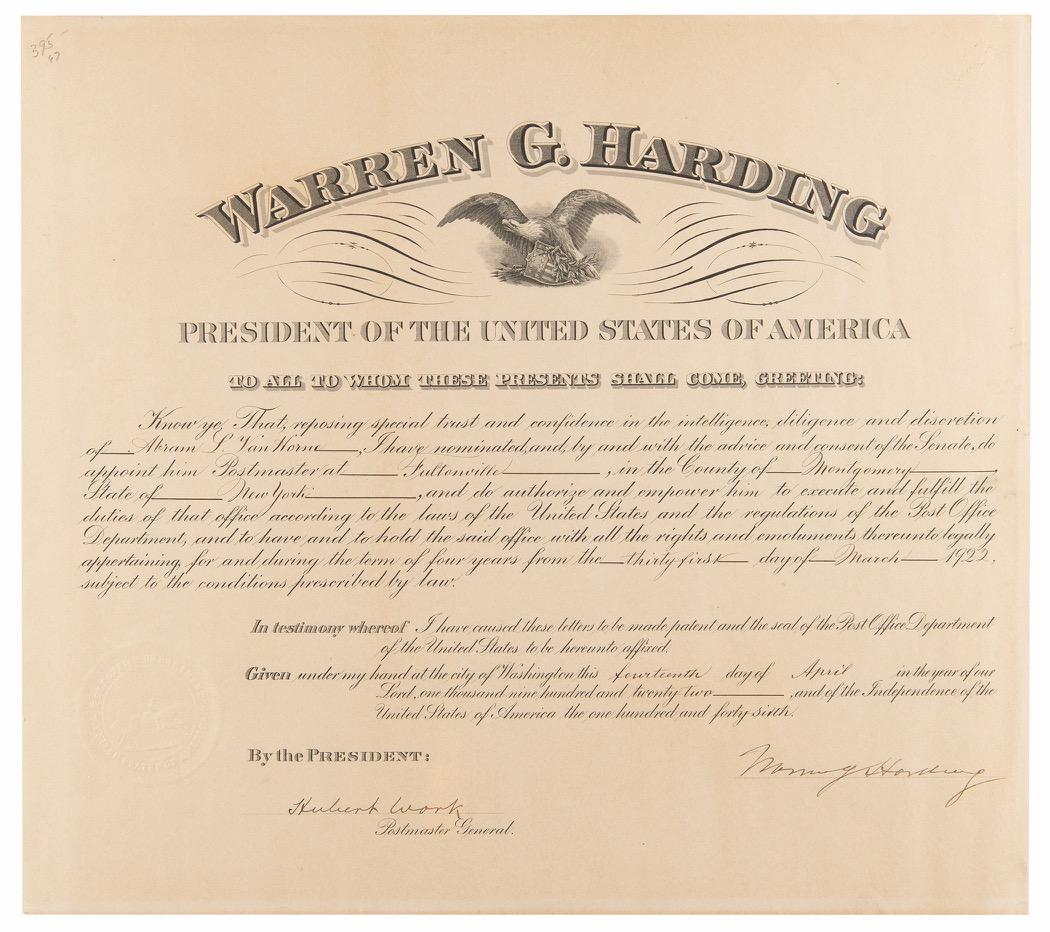 395
47
WARREN G. HARDING
PRESIDENT OF THE UNITED STATES OF AMERICA
TO ALL TO WHOM THESE PRESENTS SHALL COME, GREETING:
Know ye, That, reposing special trust and confidence in the intelligence, diligence and discretion
of Abram L. Van Horne, I have nominated, and, by and with the advice and consent of the Senate, do
appoint him Postmaster at Fultonville, in the County of Montgomery,
State of New York, and do authorize and empower him to execute and fulfill the
duties of that office according to the laws of the United States and the regulations of the Post Office
Department, and to have and to hold the said office with all the rights and emoluments thereunto legally
appertaining, for and during the term of four years from the thirty first day of March 1922,
subject to the conditions prescribed by law.
In testimony whereof I have caused these letters to be made patent and the seal of the Post Office Department
of the United States to be hereunto affixed.
Given under my hand at the city of Washington this fourteenth day of April in the year of our
Lord, one thousand nine hundred and twenty-two, and of the Independence of the
United States of America the one hundred and forty-sixth.
By the PRESIDENT:
Warren G Harding
Hubert Work
Postmaster General.